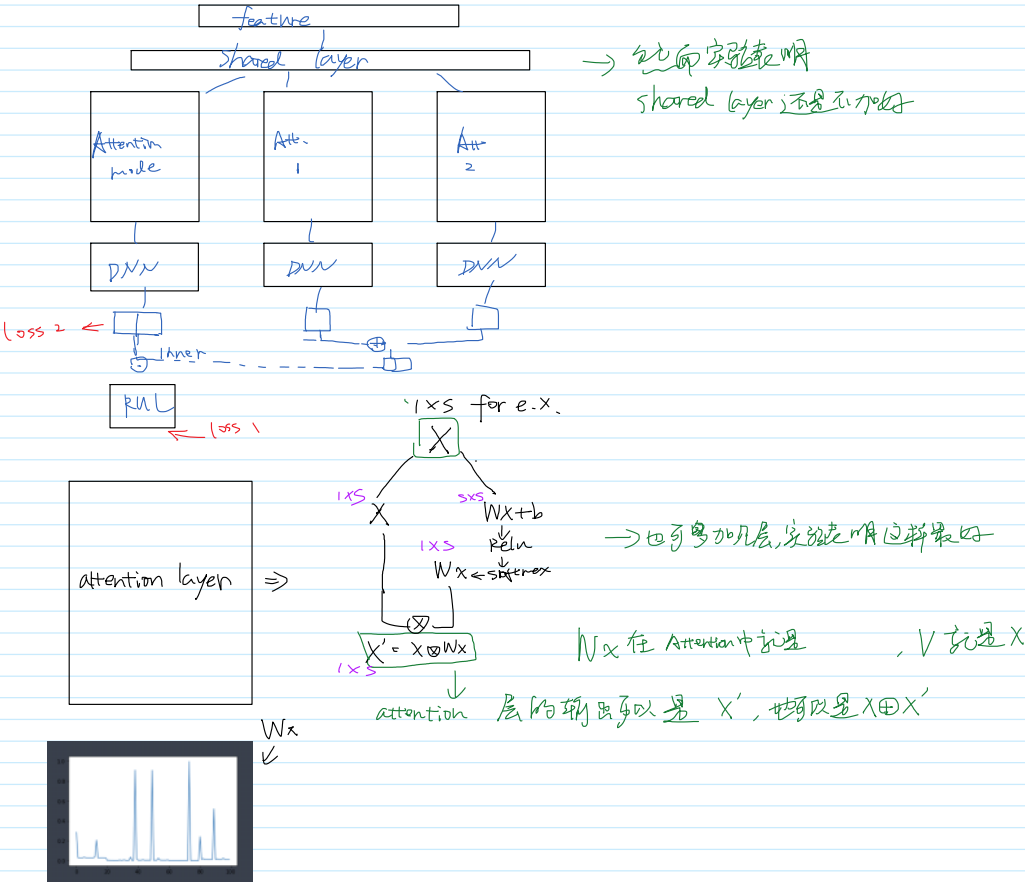 feature
shared layer
→ 然而实验表明
shared layer 还是不加好
Attention
mode
Att.
1
Att
2
DNN
DNN
DNN
loss 2 ←
Inner
RUL
loss 1
1×5 for e.x.
X
1×5
X
5×5
Wx+b
Relu
softmax
1×5
Wx
→也可多加几层,实验表明这样最好
attention layer ⇒
⊗
X' = X⊗Wx
1×5
Wx 在 Attention中就是
, V 就是 X
attention 层的输出可以是 X', 也可以是X⊕X'
Wx